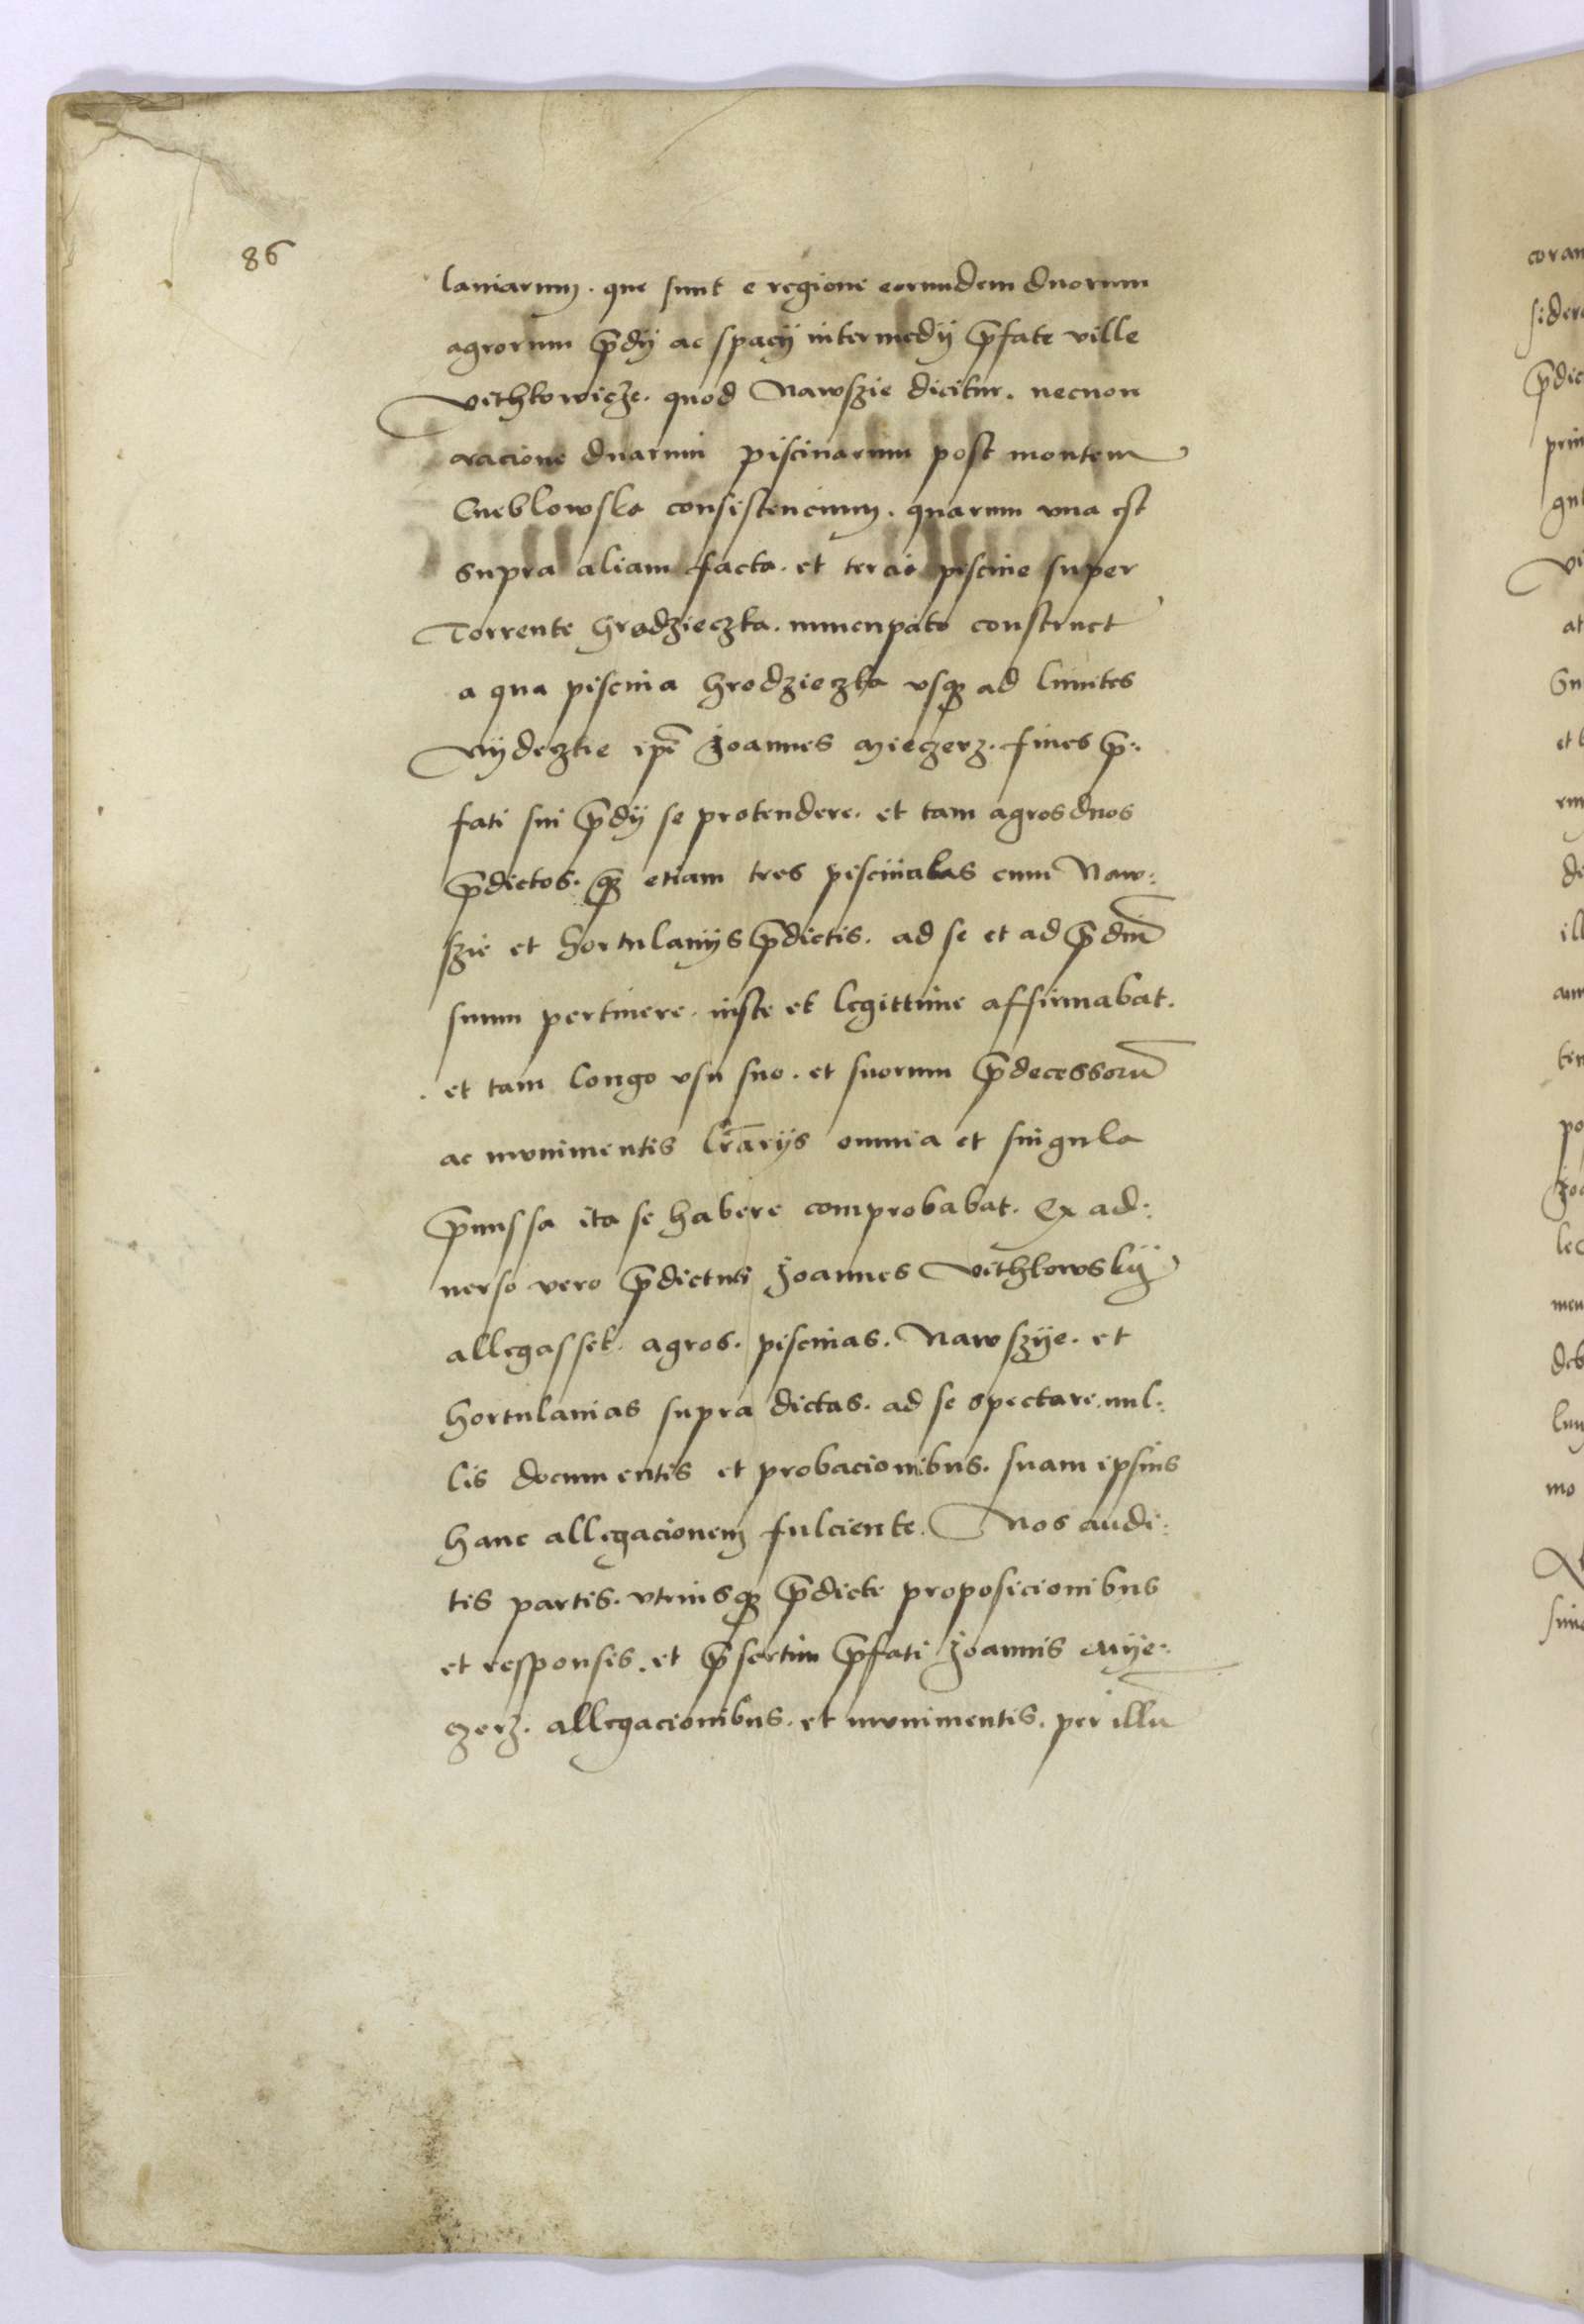 86
laniarum. que sunt e regione eorundem duorum
agrorum p̄dij ac spacij intermedij p̄fate ville
Vithkowicze. quod Nawszie dicitur. necnon
racione duarum piscinarum post montem
Cueblowska consistencium. quarum una est
supra aliam facta. et tercie piscine super
Torrente hrodzieczka. nuncupato construct
a qua piscina hrodzieczka vsq ad limites
Vijdeczkie ip̄e Joannes Mieczerz. fines p̄:
fati sui p̄dij se protendere. et tam agros duos
p̄dictos. q̄ etiam tres piscinulas cum Naw:
szie et hortulanijs p̄dictis. ad se et ad p̄diū
suum pertinere. iuste et legittime affirmabat.
et tam longo vsu suo. et suorum p̄decessorū
ac munimentis lr̄arijs omnia et singula
p̄missa ita se habere comprobabat. Ex ad:
uerso vero p̄dictus Joannes Vithkowskij
allegasset. agros. piscinas. Nawszije. et
hortulanias supra dictas. ad se spectare. nul:
lis documentis et probacionibus. suam ipsius
hanc allegacionem fulciente. Nos audi:
tis partis. vtriusq p̄dicte proposicionibus
et responsis. et p̄sertim p̄fati Joannis Mije:
czerz. allegacionibus. et munimentis. per illū
coram
p̄dic
prin
Vi
at
et
de
ill
po
lec
mo